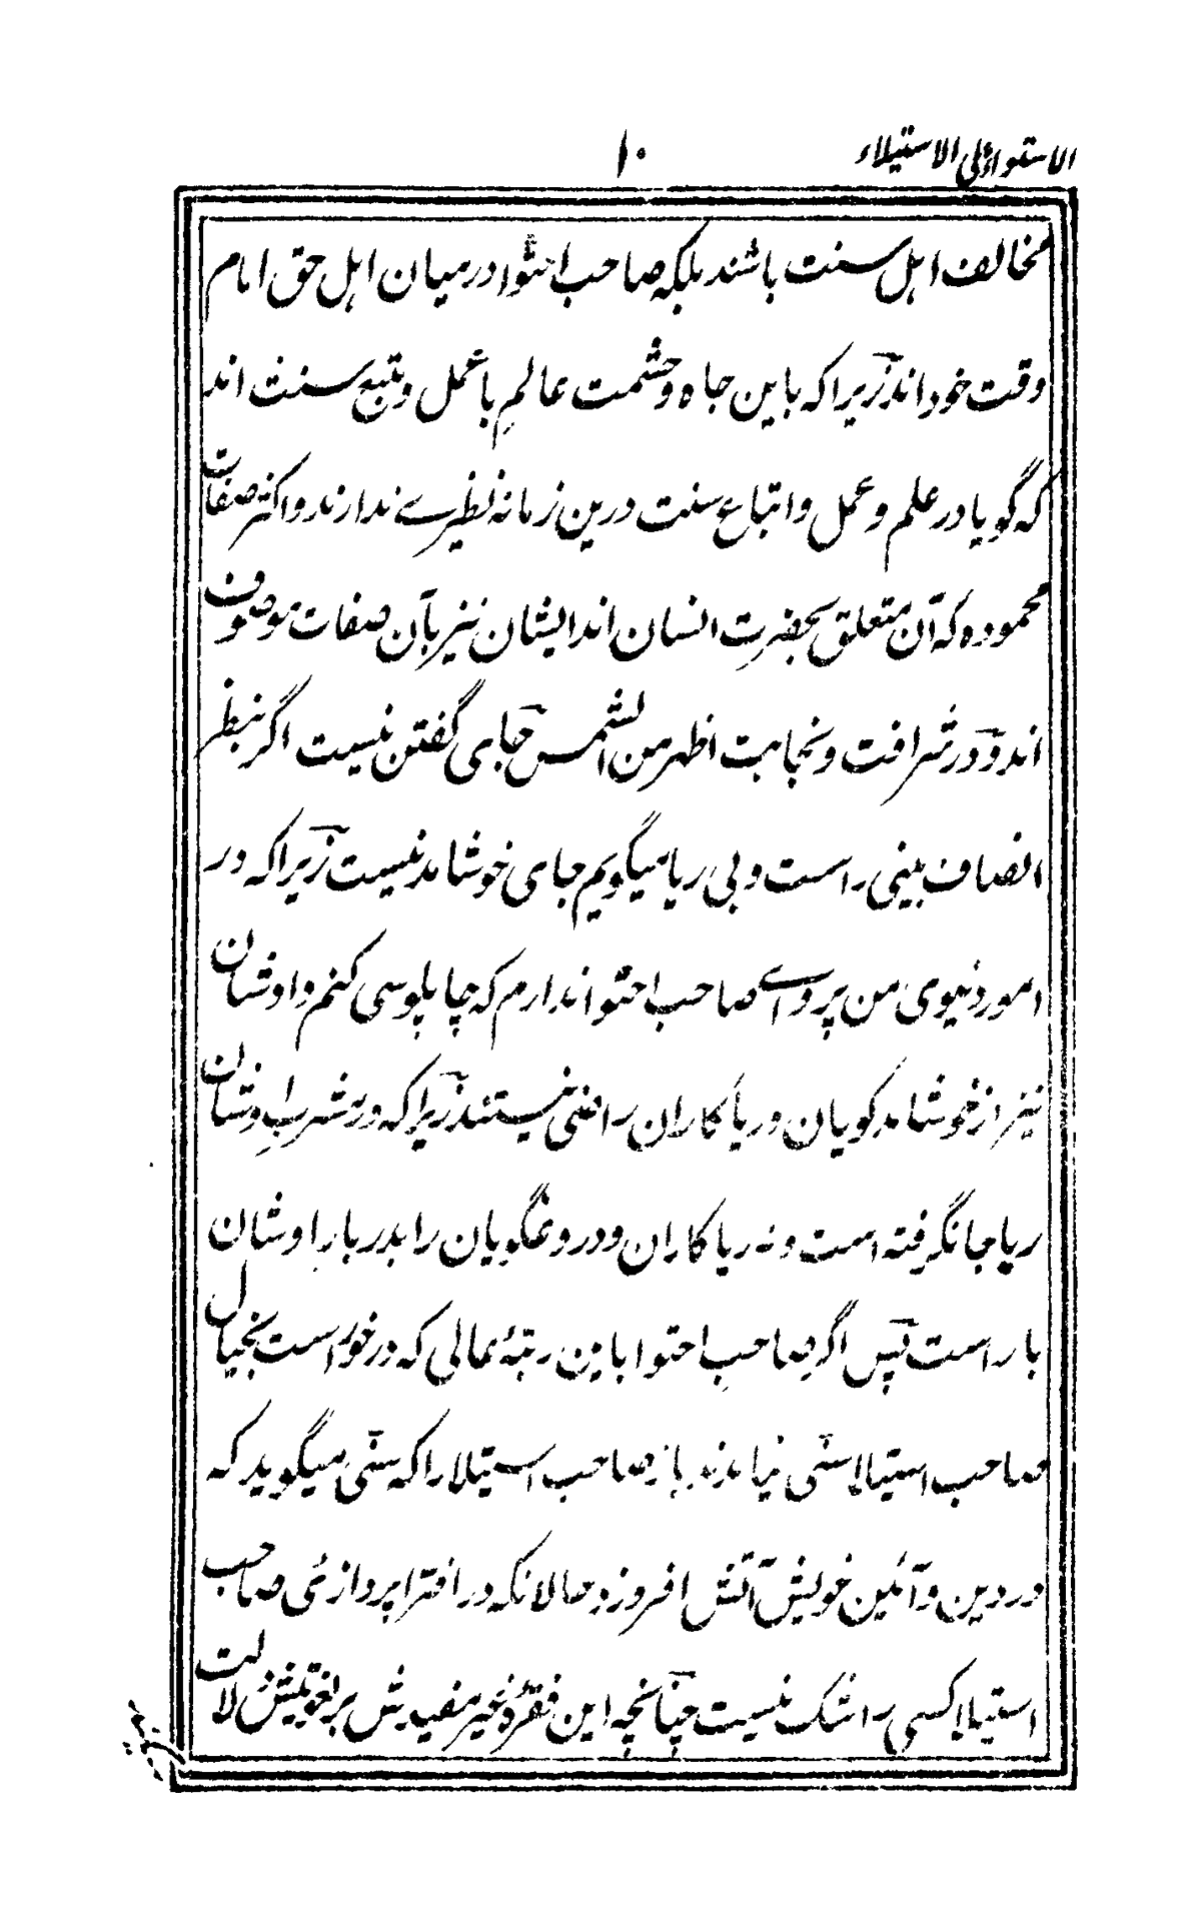 الاستواء علی الاستیلاء
۱۰
مخالف اہل سنت باشند بلکہ صاحب احتوا درمیان اہل حق امام
وقت خود اند زیرا کہ باین جاہ و حشمت عالمِ با عمل و متبع سنت اند
کہ گویا در علم و عمل و اتباع سنت درین زمانہ نظیرے ندارند و اکثر صفات
محمودہ کہ آن متعلق بحضرتِ انسان اند ایشان نیز بآن صفات موصوف
اند و در شرافت و نجابت اظہر من الشمس جای گفتن نیست اگر بنظر
انصاف بینی راست و بی ریا میگویم جای خوشامد نیست زیرا کہ در
امور دنیوی من پرواے صاحب احتوا ندارم کہ چاپلوسی کنم و اوشان
نیز از خوشامد گویان و ریا کاران راضی نیستند زیرا کہ در مشربِ اوشان
ریا جا نگرفتہ است و نہ ریا کاران و دروغگویان را بدربارِ اوشان
بار است پس اگر صاحبِ احتوا باین رتبۂ عالی کہ در خور است بخیال
صاحب استیلا سنی نیامدند باز صاحب استیلا را کہ سنی میگوید کہ
در دین و آئین خویش آتش افروزد حالانکہ در افترا پردازئ صاحب
استیلا کسی را شک نیست چنانچہ این فقرۂ غیر مفیدش بر لغویتش دلالت